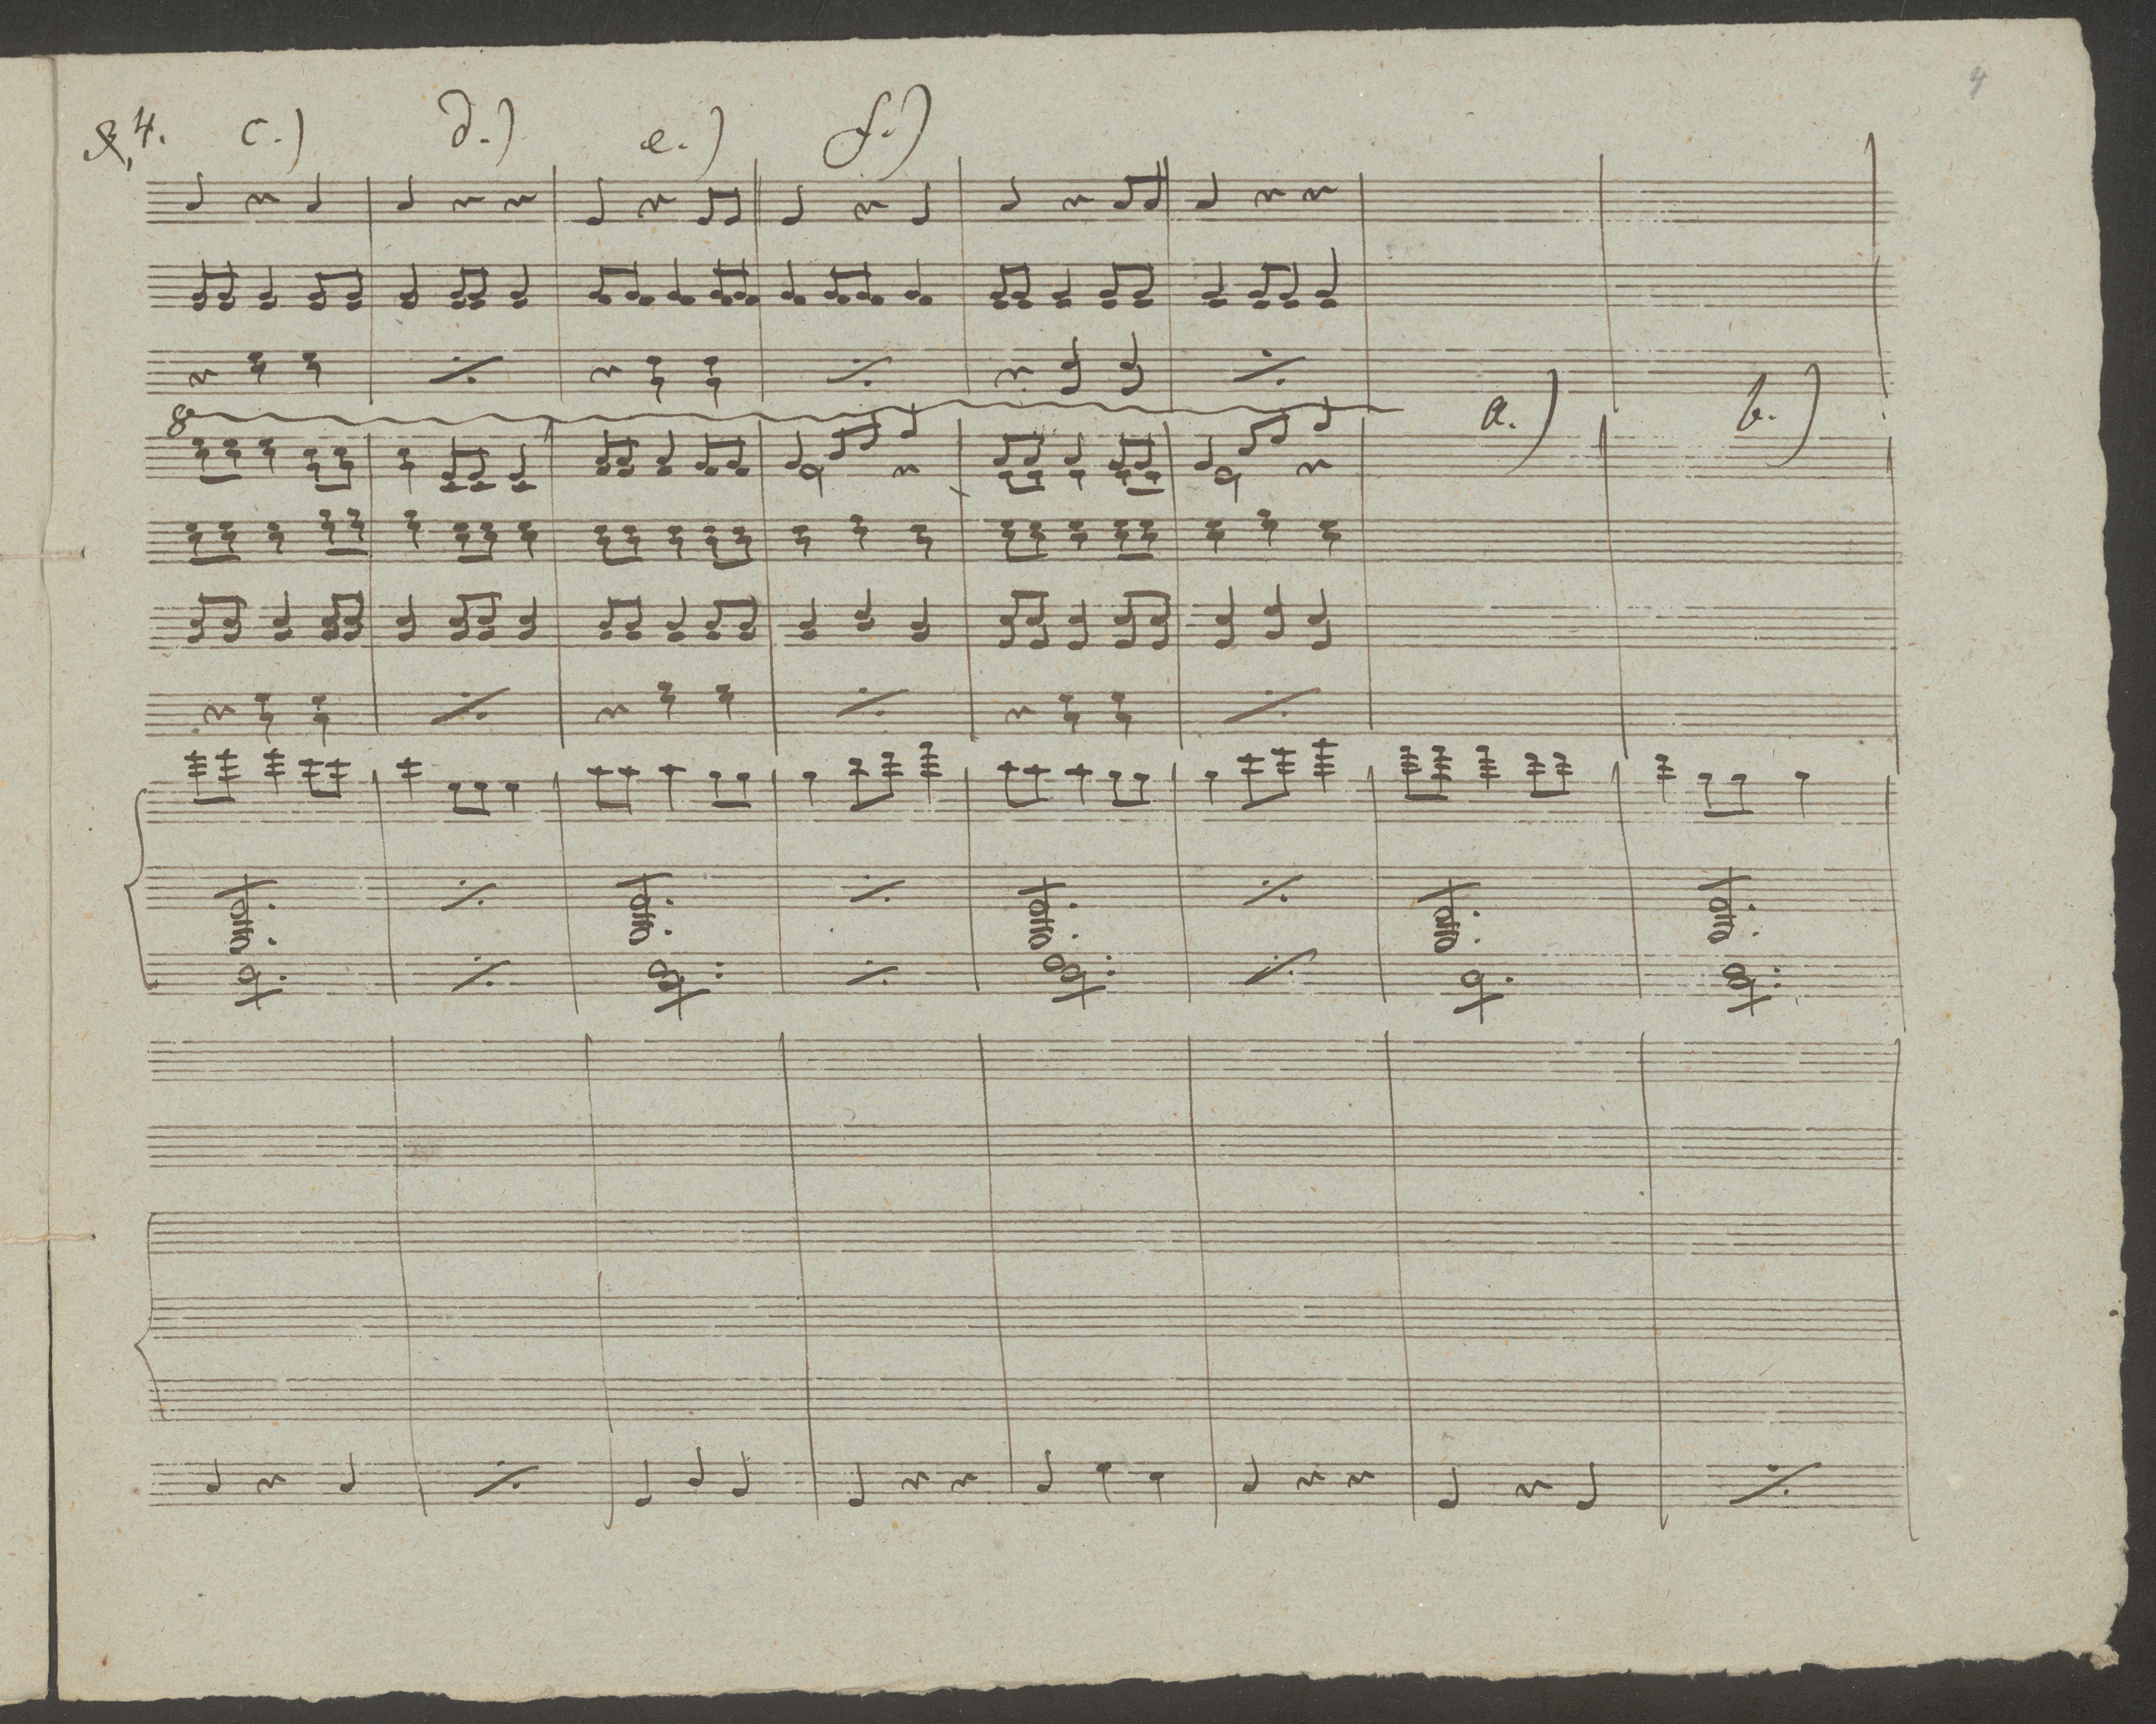 4
4. c.) d.) e.) f.)
8 a.) b.)